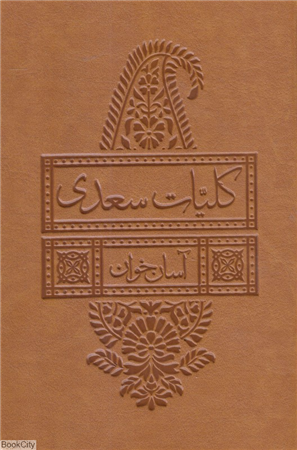 کلیّات سعدی
آسان‌خوان
BookCity